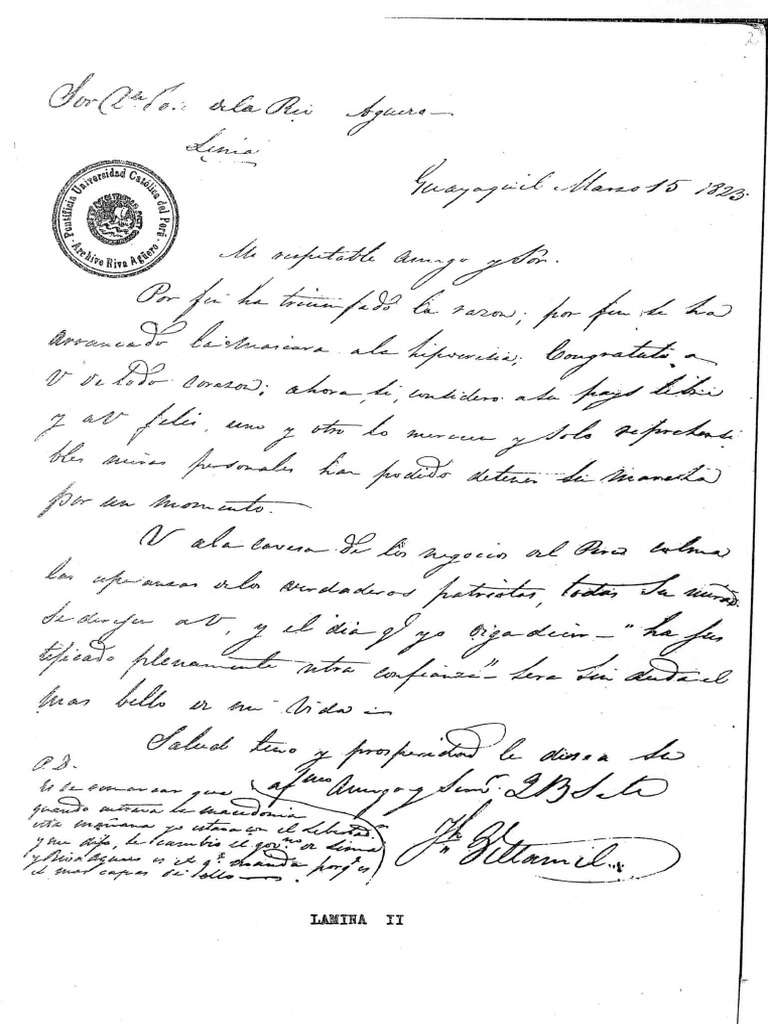 2
Sor Dn
de la Riva Aguero
Lima
Pontificia Universidad Católica del Perú
Archivo Riva Agüero
Guayaquil Marzo 15 1823
Mi respetable amigo y Sor.
Por fin ha triunfado la razon; por fin se ha
arrancado la mascara a la hipocresia; Congratulo a
V de todo corazon; ahora, si, considero a su pays libre
y a V felis, uno y otro lo merecen y solo reprehensi
bles miras personales han podido detener su marcha
por un momento.
V a la cavesa de los negocios del Peru colma
las esperansas de los verdaderos patriotas, todas su
se dirijen a V, y el dia q.e yo oiga decir "ha jus
tificado plenamente ntra confianza" sera sin duda el
mas bello de mi vida
Salud y prosperidad le desea su
af.mo Amigo y Serv.r Q B S M
Villamil
P.D.
Es de que
quando la macedonia
esta mañana yo estava con el Libertador
y me dijo, se cambio el gov.no de Lima
y Riva Aguero es el q.e manda porq.e es
el mas capas de ello
LAMINA II